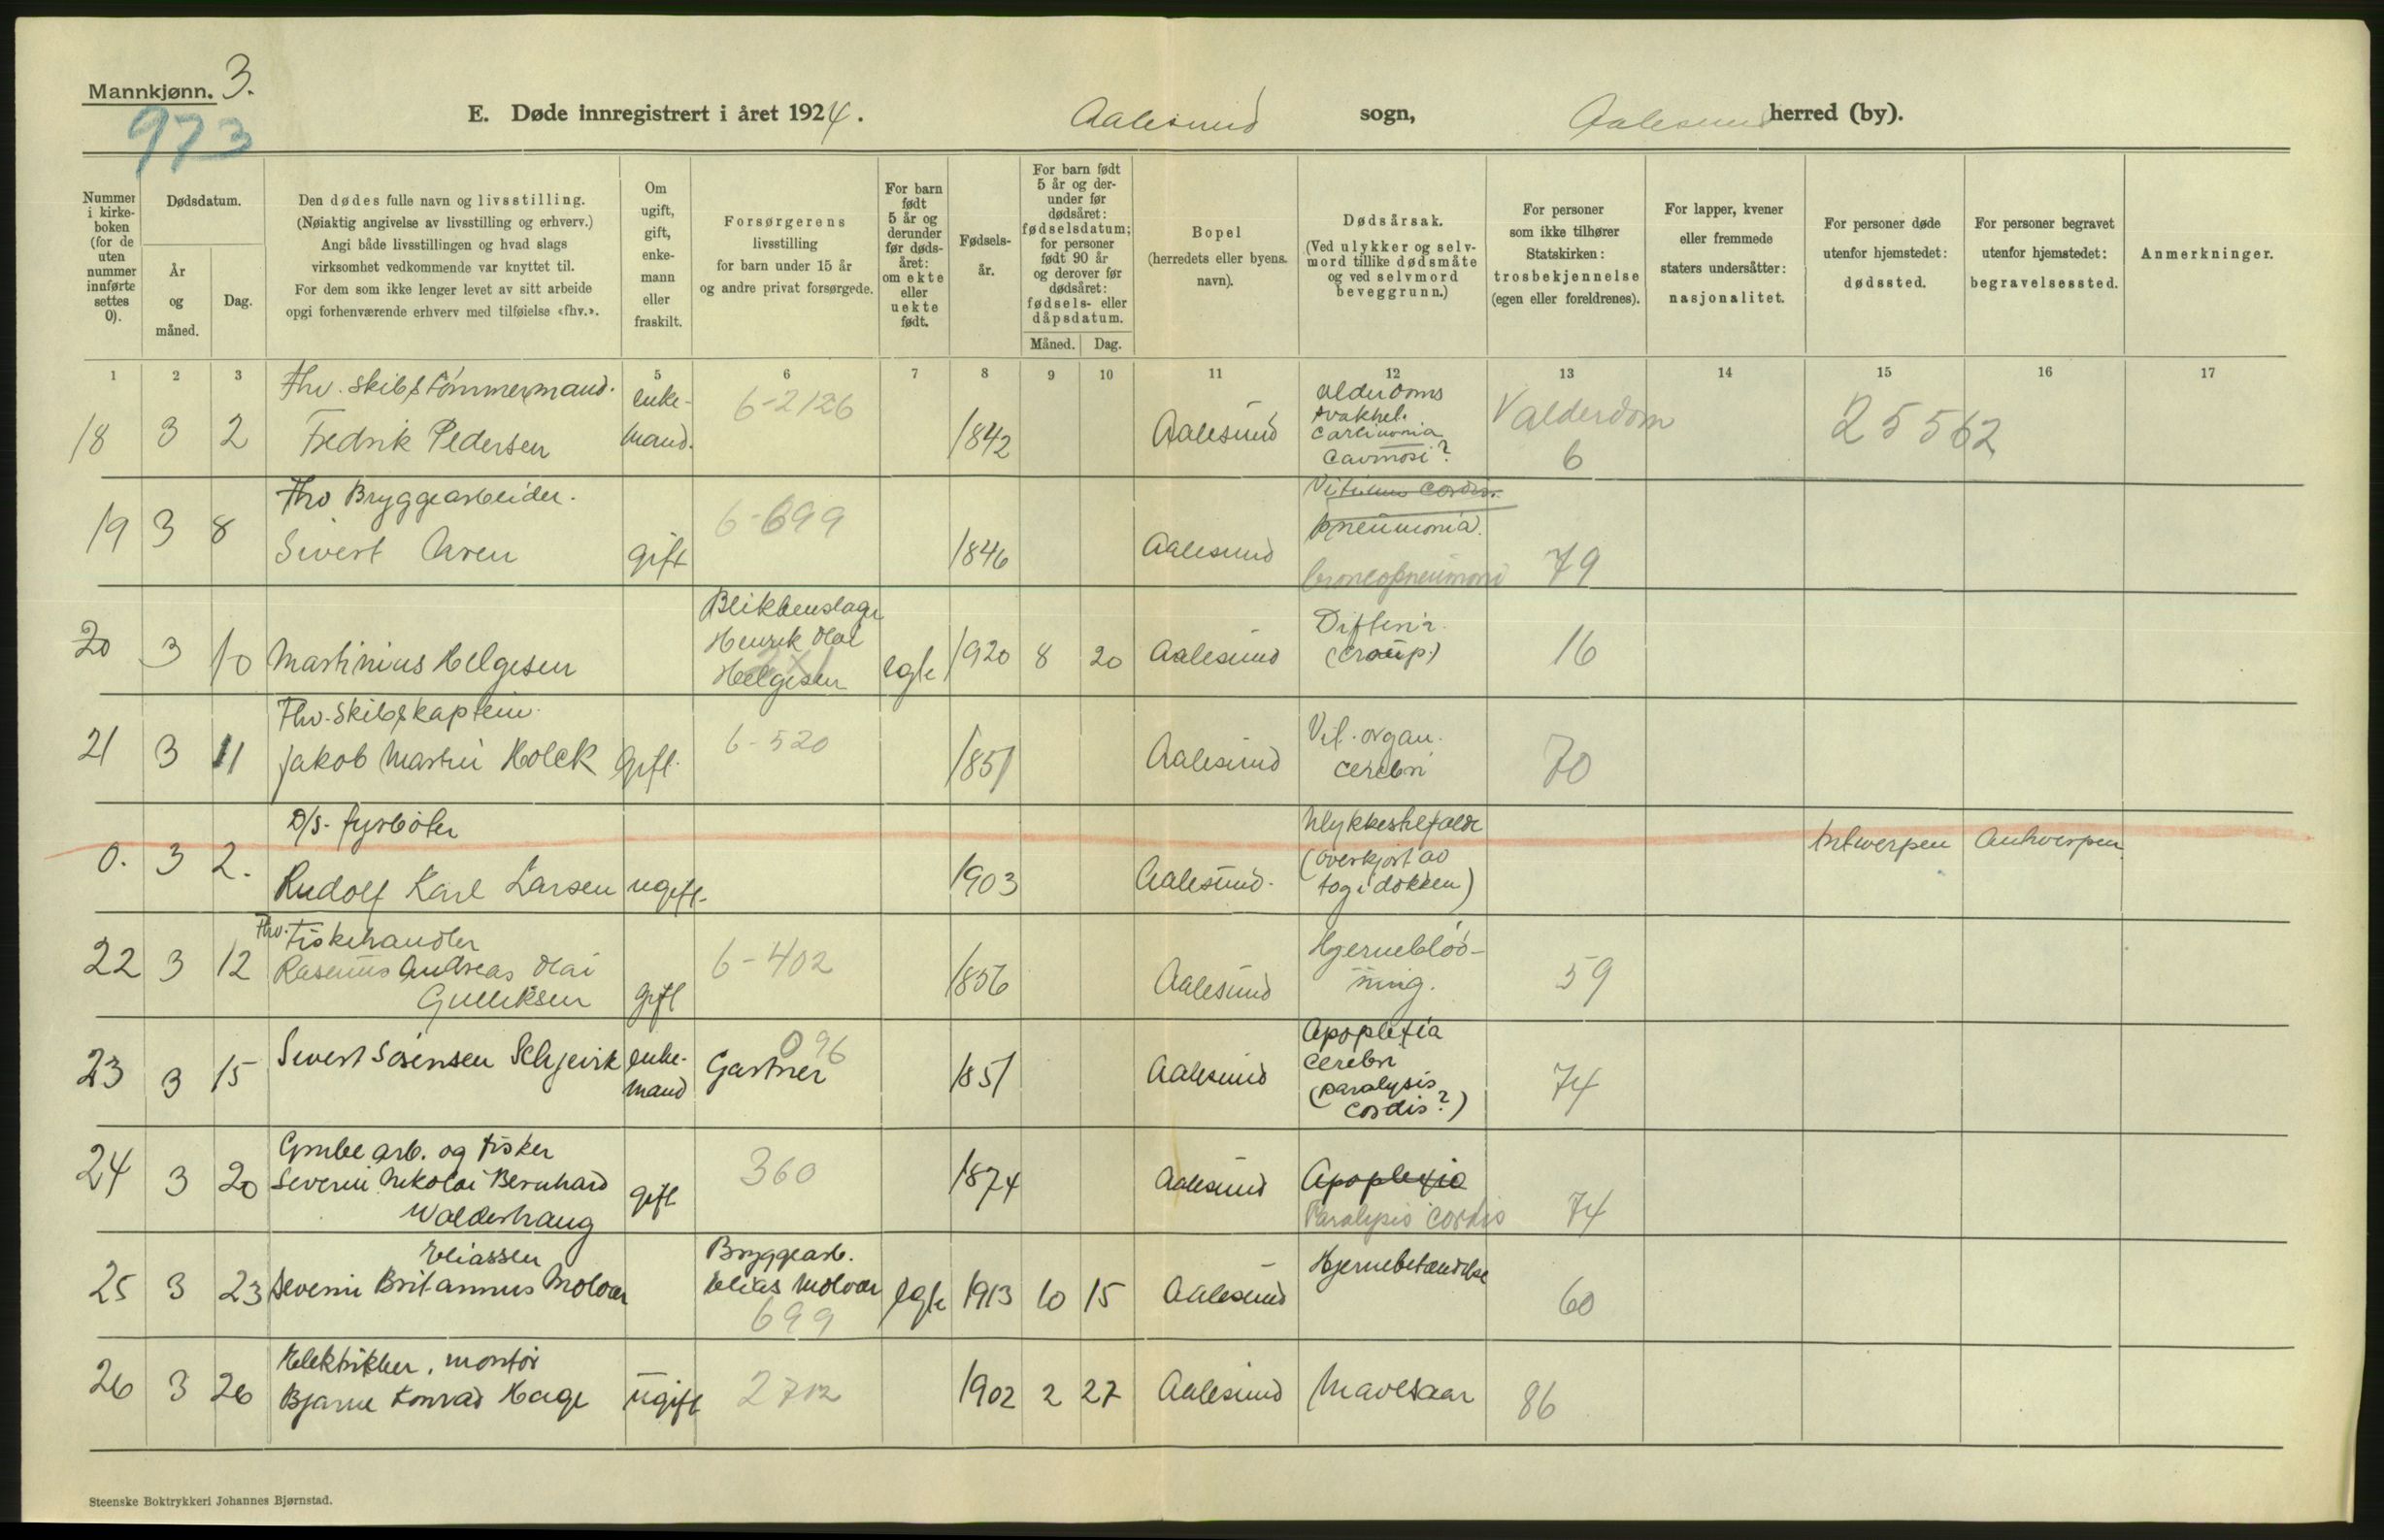 Mannkjønn. 3.
973
E. Døde innregistrert i året 1924. Aalesund sogn, Aalesund herred (by).
Nummer i kirke- boken (for de uten nummer innførte settes 0).
Dødsdatum.
År og måned.
Dag.
Den dødes fulle navn og livsstilling.
(Nøiaktig angivelse av livsstilling og erhverv.)
Angi både livsstillingen og hvad slags
virksomhet vedkommende var knyttet til.
For dem som ikke lenger levet av sitt arbeide
opgi forhenværende erhverv med tilføielse «fhv.».
Om ugift, gift, enke- mann eller fraskilt.
Forsørgerens
livsstilling
for barn under 15 år
og andre privat forsørgede.
For barn født 5 år og derunder før døds- året: om ekte eller uekte født.
Fødsels- år.
For barn født 5 år og der- under før dødsåret: fødselsdatum; for personer født 90 år og derover før dødsåret: fødsels- eller dåpsdatum.
Måned. Dag.
Bopel
(herredets eller byens navn).
Dødsårsak.
(Ved ulykker og selv-
mord tillike dødsmåte
og ved selvmord
beveggrunn.)
For personer
som ikke tilhører
Statskirken:
trosbekjennelse
(egen eller foreldrenes).
For lapper, kvener
eller fremmede
staters undersåtter:
nasjonalitet.
For personer døde
utenfor hjemstedet:
dødssted.
For personer begravet
utenfor hjemstedet:
begravelsessted.
Anmerkninger.
1 2 3 5 6 7 8 9 10 11 12 13 14 15 16 17
Fhv. skibstømmermand.
18 3 2 Fredrik Pedersen enke- mand. 6-2126 1842 Aalesund Alderdoms svakhet. Valderdom 6 25562
Fhv Bryggearbeider.
19 3 8 Sivert Aren gift 6-699 1846 Aalesund Vitium cordis. pneumonia. broncopneumoni 79
20 3 10 Martinius Helgesen Blikkenslager Henrik Olai Helgesen egte 1920 8 20 Aalesund Difteri (croup.) 16
Fhv. Skibskaptein.
21 3 11 Jakob Martin Holck Gift. 6-520 1851 Aalesund Vit. organ. cerebri 70
D/s. fyrbøter
0. 3 2. Rudolf Karl Larsen ugift. 1903 Aalesund. Ulykkestilfælde (overkjørt av tog i dokken) Antwerpen Antwerpen
Fhv. Fiskehandler
22 3 12 Rasmus Andreas Olai Gulliksen gift 6-402 1856 Aalesund Hjerneblød- ning. 59
23 3 15 Sivert Sørensen Schjevik enke- mand Gartner 096 1851 Aalesund Apoplexia cerebri (paralysis cordis?) 74
Grube arb. og fisker
24 3 20 Severin Nikolai Bernhard Walderhaug gift 360 1874 Aalesund Apoplexia Paralysis cordis 74
Eliassen
25 3 23 Severin Britannus Molvær Bryggearb. Elias Molvær 699 egte 1913 10 15 Aalesund Hjernebetændelse 60
Elektriker, montør
26 3 26 Bjarne Konrad Hage ugift 2702 1902 2 27 Aalesund Mavesaar 86
Steenske Boktrykkeri Johannes Bjørnstad.